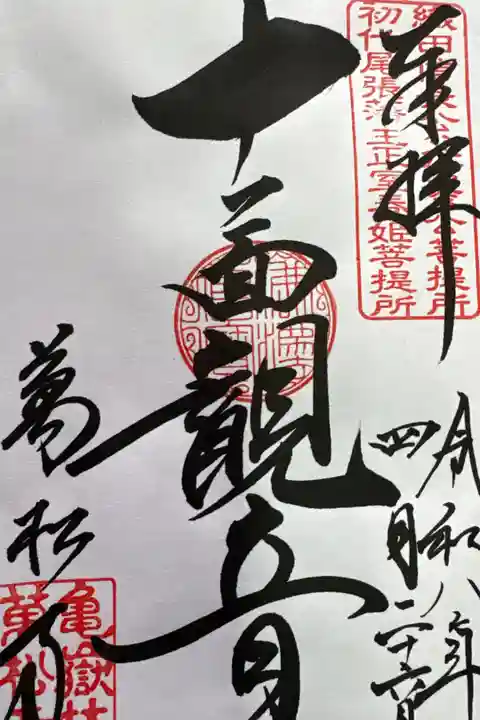 奉拝
織田 公菩提所
初代尾張藩主正室春姫菩提所
令和八年
四月二十六日
十一面觀音
萬松寺
亀嶽林
萬松寺